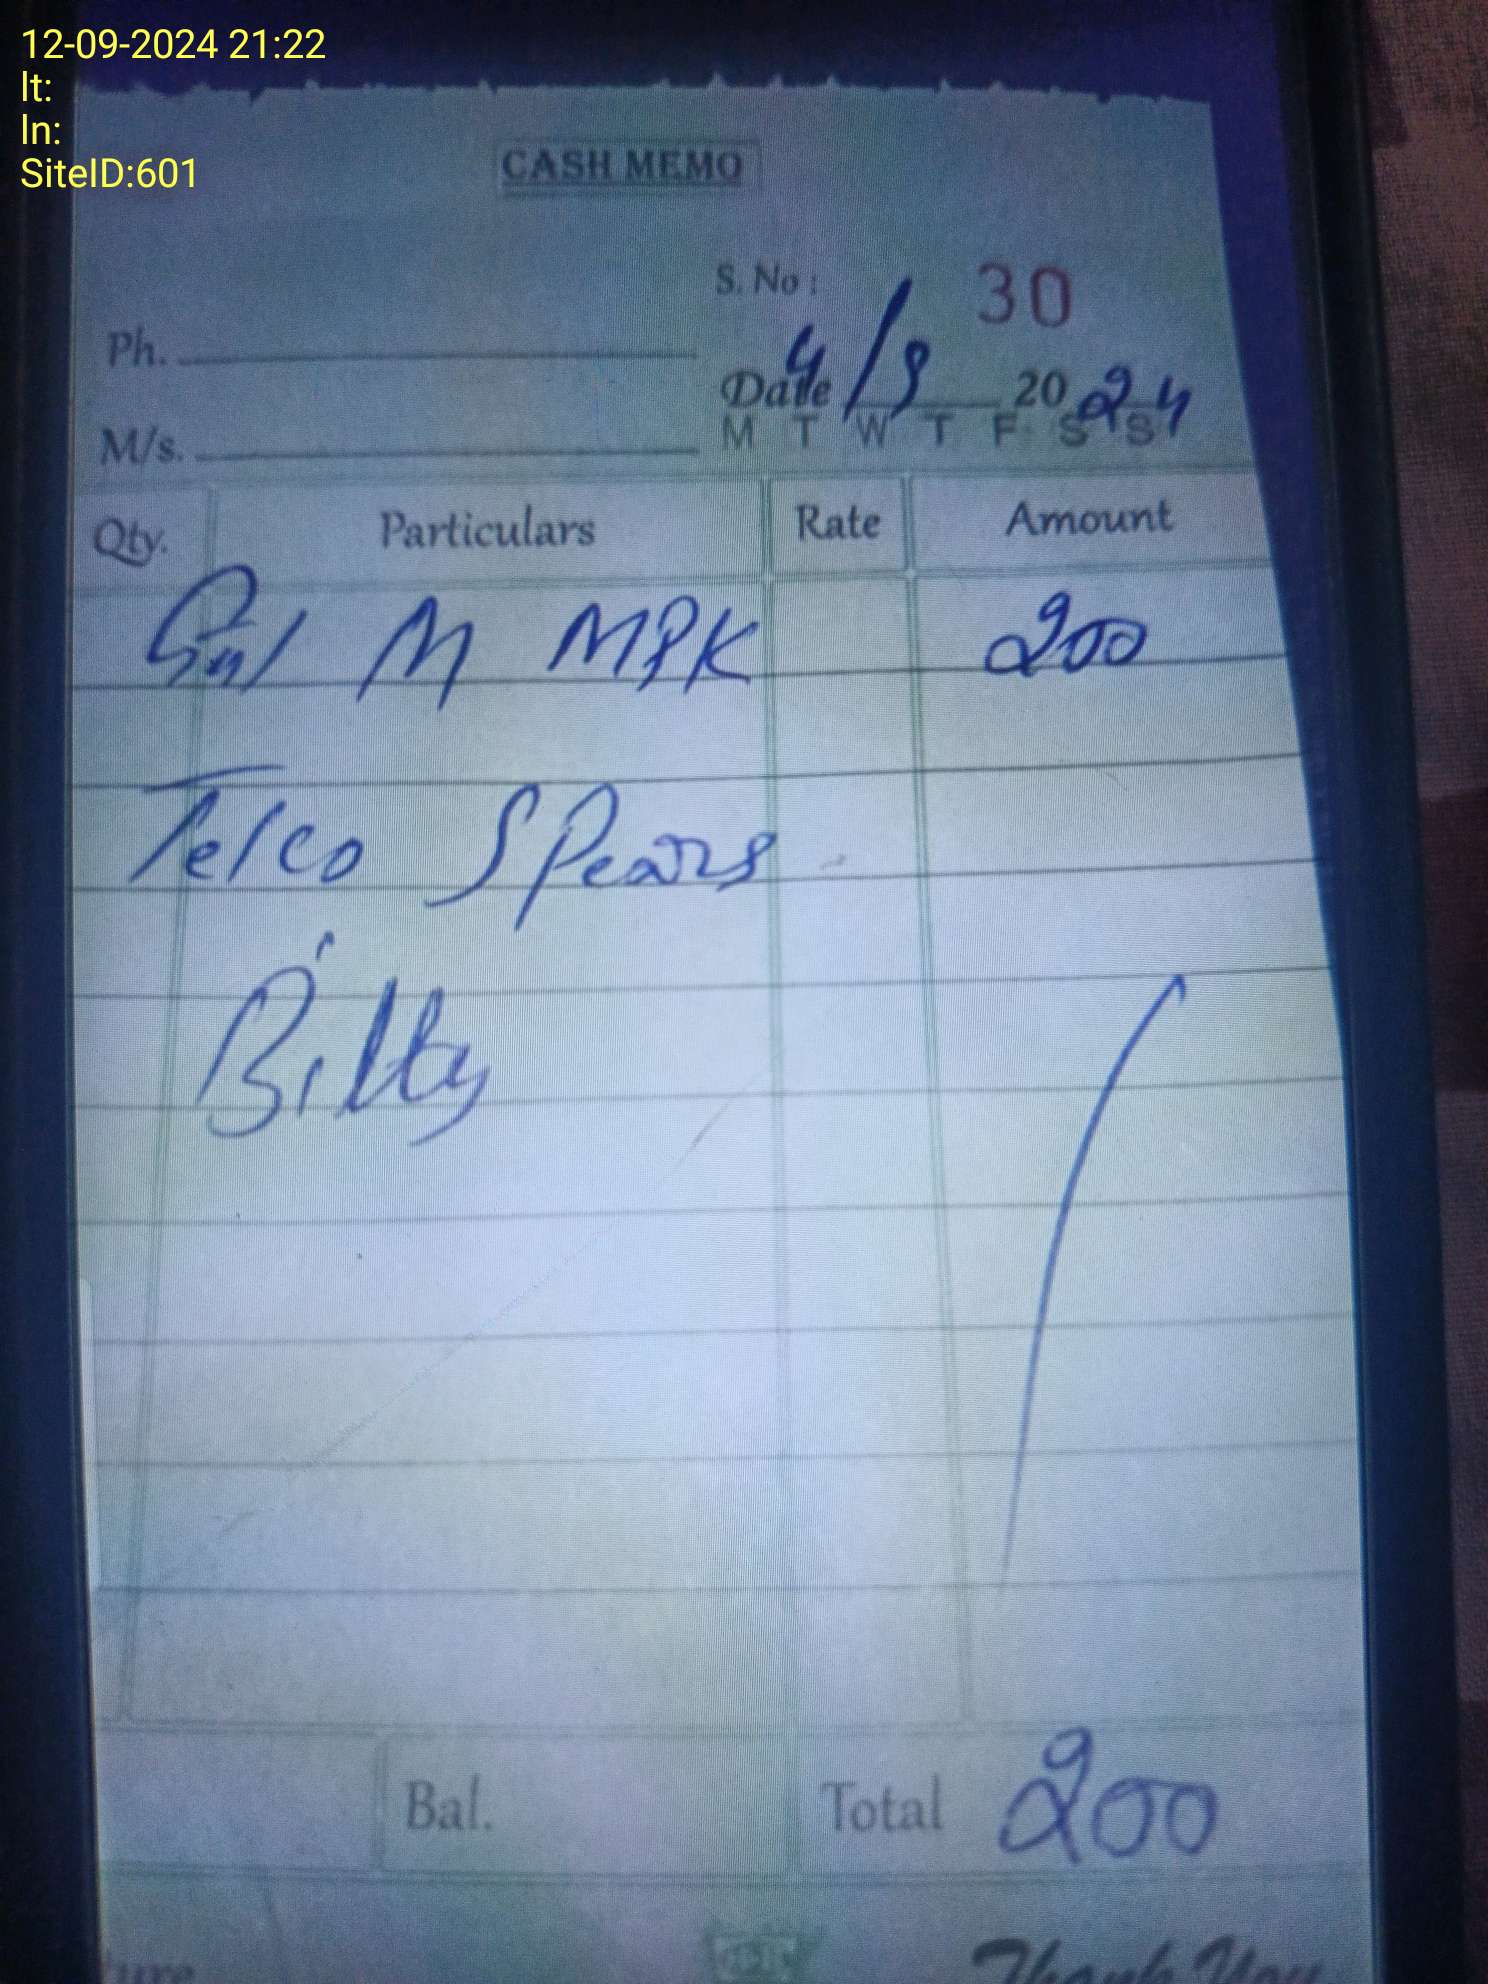 12-09-2024 21:22
lt:
ln:
SiteID:601
CASH MEMO
S. No : 30
Ph.
Date 4/9 2024
M/s.
M T W T F S S
Qty. Particulars Rate Amount
Gul M MPK 200
Telco SPears
Bilty
Bal. Total 200
Thank You